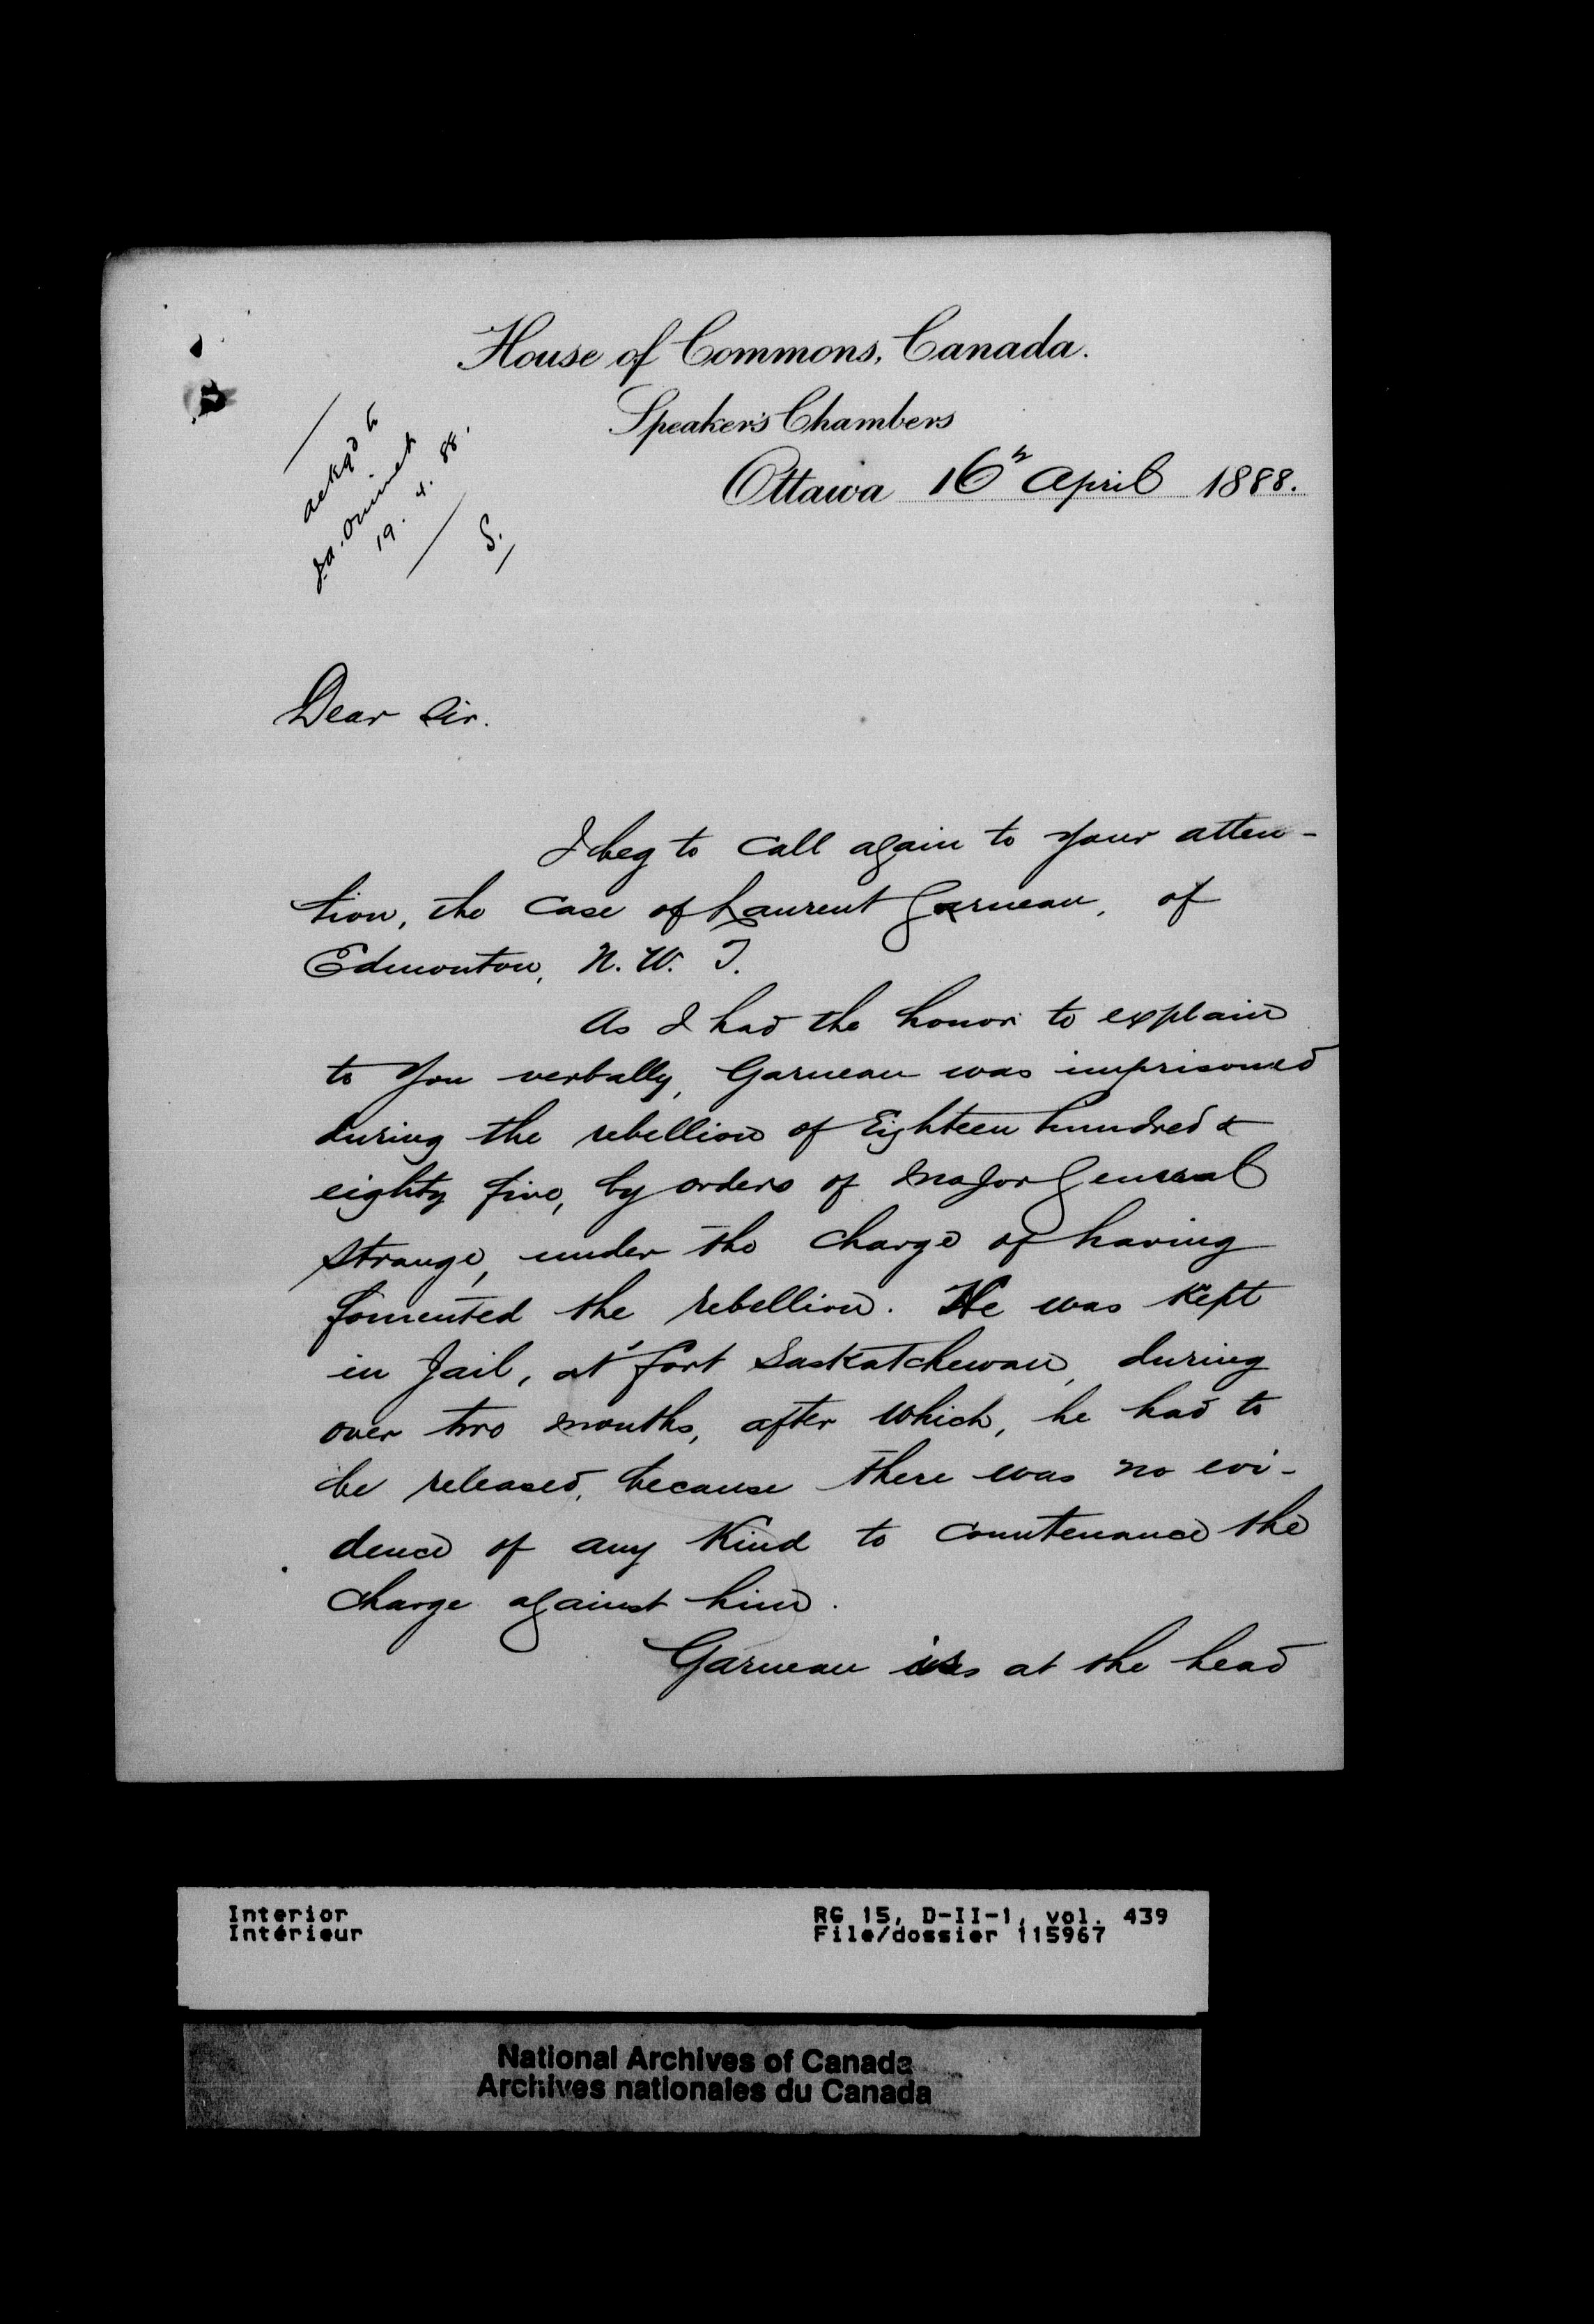 House of Commons, Canada.
Speaker's Chambers
Ottawa 16th April 1888.
ackgd to
J.A. Ouimet
19. 4. 88.
S.
Dear Sir.
I beg to call again to your atten-
tion, the case of Laurent Garneau, of
Edmonton, N. W. T.
As I had the honor to explain
to you verbally, Garneau was imprisoned
during the rebellion of Eighteen hundred &
eighty five, by orders of Major General
Strange, under the charge of having
fomented the rebellion. He was kept
in Jail, at Fort Saskatchewan, during
over two months, after which, he had to
be released, because there was no evi-
dence of any kind to countenance the
charge against him.
Garneau is at the head
Interior
Intérieur
RG 15, D-II-1, vol. 439
File/dossier 115967
National Archives of Canada
Archives nationales du Canada